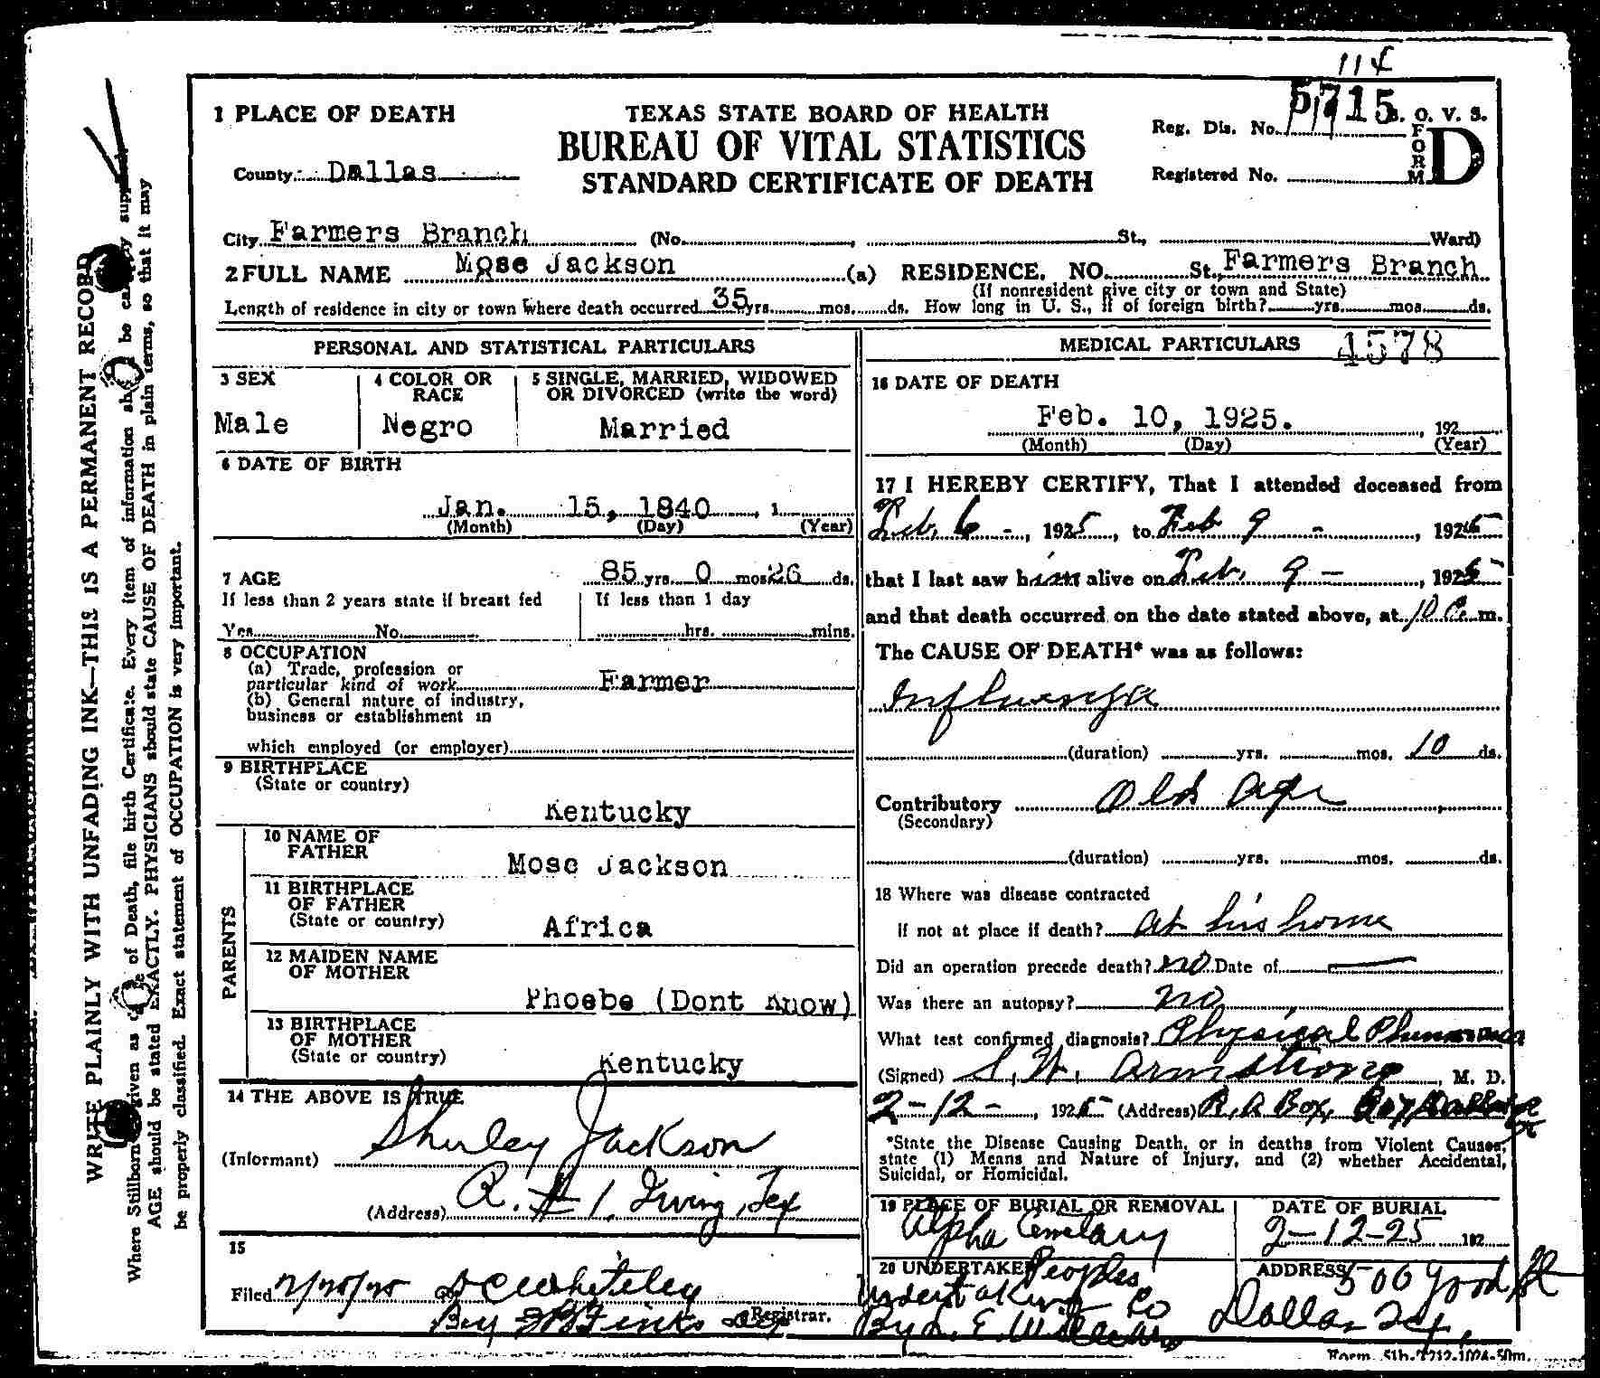 114
1 PLACE OF DEATH
TEXAS STATE BOARD OF HEALTH
Reg. Dis. No. 5715 B. O. V. S.
BUREAU OF VITAL STATISTICS
FORM D
County Dallas
STANDARD CERTIFICATE OF DEATH
Registered No.
City Farmers Branch (No. , St., Ward)
2 FULL NAME Mose Jackson (a) RESIDENCE. NO. St., Farmers Branch
(If nonresident give city or town and State)
Length of residence in city or town where death occurred 35 yrs. mos. ds. How long in U. S., if of foreign birth? yrs. mos. ds.
PERSONAL AND STATISTICAL PARTICULARS
3 SEX
Male
4 COLOR OR RACE
Negro
5 SINGLE, MARRIED, WIDOWED
OR DIVORCED (write the word)
Married
6 DATE OF BIRTH
Jan. 15, 1840 , 1
(Month) (Day) (Year)
7 AGE 85 yrs. 0 mos. 26 ds.
If less than 2 years state if breast fed
Yes No
If less than 1 day
hrs. mins.
8 OCCUPATION
(a) Trade, profession or
particular kind of work Farmer
(b) General nature of industry,
business or establishment in
which employed (or employer)
9 BIRTHPLACE
(State or country)
Kentucky
PARENTS
10 NAME OF
FATHER
Mose Jackson
11 BIRTHPLACE
OF FATHER
(State or country)
Africa
12 MAIDEN NAME
OF MOTHER
Phoebe (Dont Know)
13 BIRTHPLACE
OF MOTHER
(State or country)
Kentucky
14 THE ABOVE IS TRUE
(Informant) Shirley Jackson
(Address) R. #1. Irving, Tex
15
Filed 2/28/25 C Whiteley
By Finks
Registrar.
MEDICAL PARTICULARS 4578
16 DATE OF DEATH
Feb. 10, 1925. , 192
(Month) (Day) (Year)
17 I HEREBY CERTIFY, That I attended deceased from
Feb. 6 -, 1925, to Feb 9 -, 1925
that I last saw him alive on Feb. 9 -, 1925
and that death occurred on the date stated above, at 10 m.
The CAUSE OF DEATH* was as follows:
Influenza
(duration) yrs. mos. 10 ds.
Contributory Old Age
(Secondary)
(duration) yrs. mos. ds.
18 Where was disease contracted
if not at place if death? At his home
Did an operation precede death? no Date of
Was there an autopsy? no
What test confirmed diagnosis? Physical
(Signed) S. W. Armstrong, M. D.
2-12-, 1925 (Address) R. Box,
*State the Disease Causing Death, or in deaths from Violent Causes,
state (1) Means and Nature of Injury, and (2) whether Accidental,
Suicidal, or Homicidal.
19 PLACE OF BURIAL OR REMOVAL
Alpha Cemetary
DATE OF BURIAL
2-12-25 192
20 UNDERTAKER Peoples
Undertaking Co
By L. E. Williams
ADDRESS 500 Good St
Dallas Tex,
WRITE PLAINLY WITH UNFADING INK—THIS IS A PERMANENT RECORD
Where Stillborn given as of Death, file birth Certificate. Every item of information should be carefully supplied.
AGE should be stated EXACTLY. PHYSICIANS should state CAUSE OF DEATH in plain terms, so that it may
be properly classified. Exact statement of OCCUPATION is very important.